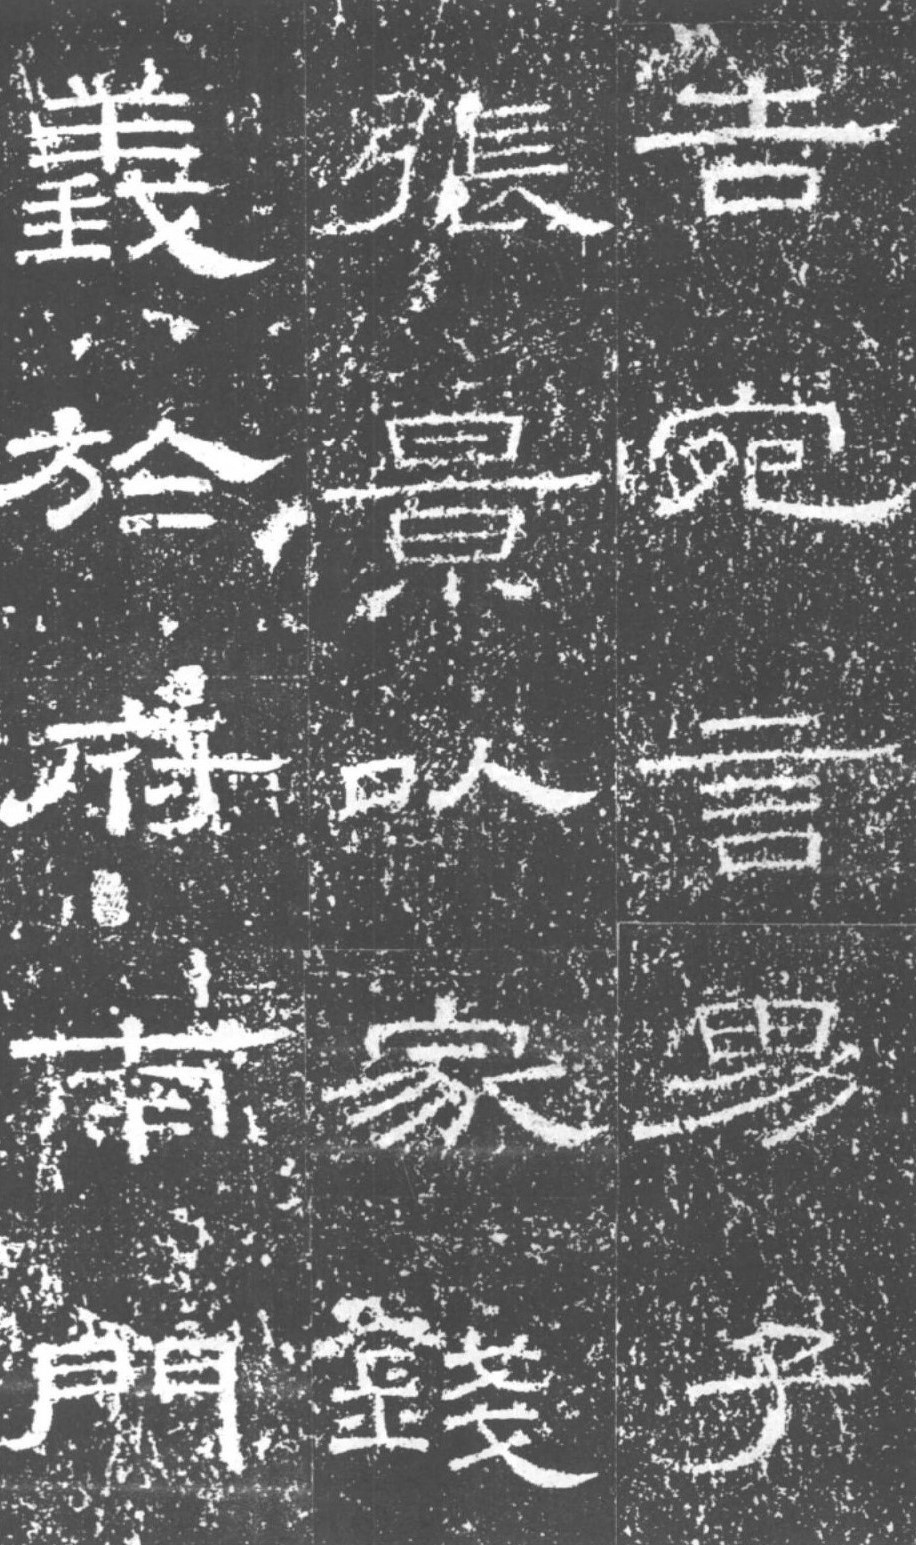 告宛言男子
張景以家錢
義於府南門